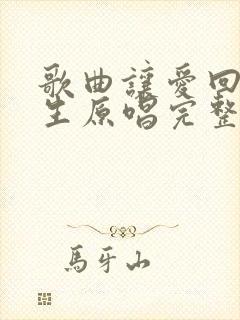 歌曲讓愛回
生原唱完整
馬牙山